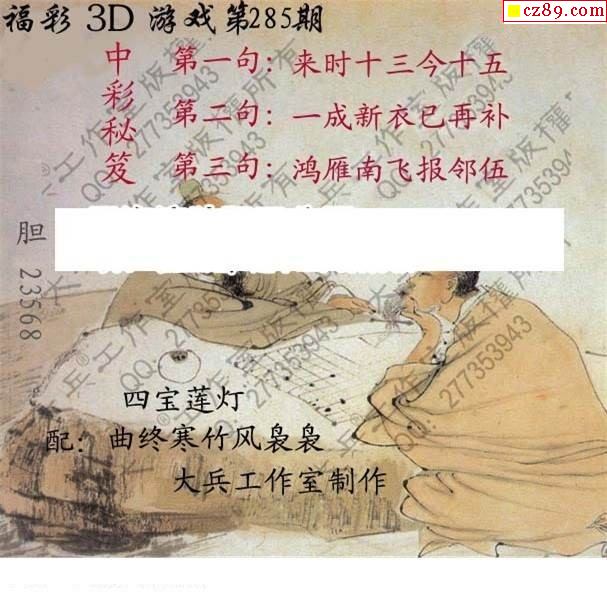 福彩 3D 游戏第285期
cz89.com
中彩秘笈
第一句：来时十三今十五
第二句：一成新衣已再补
第三句：鸿雁南飞报邻伍
胆 23568
四宝莲灯
配：曲终寒竹风袅袅
大兵工作室制作
大兵®工作室版权所有
QQ:277353943